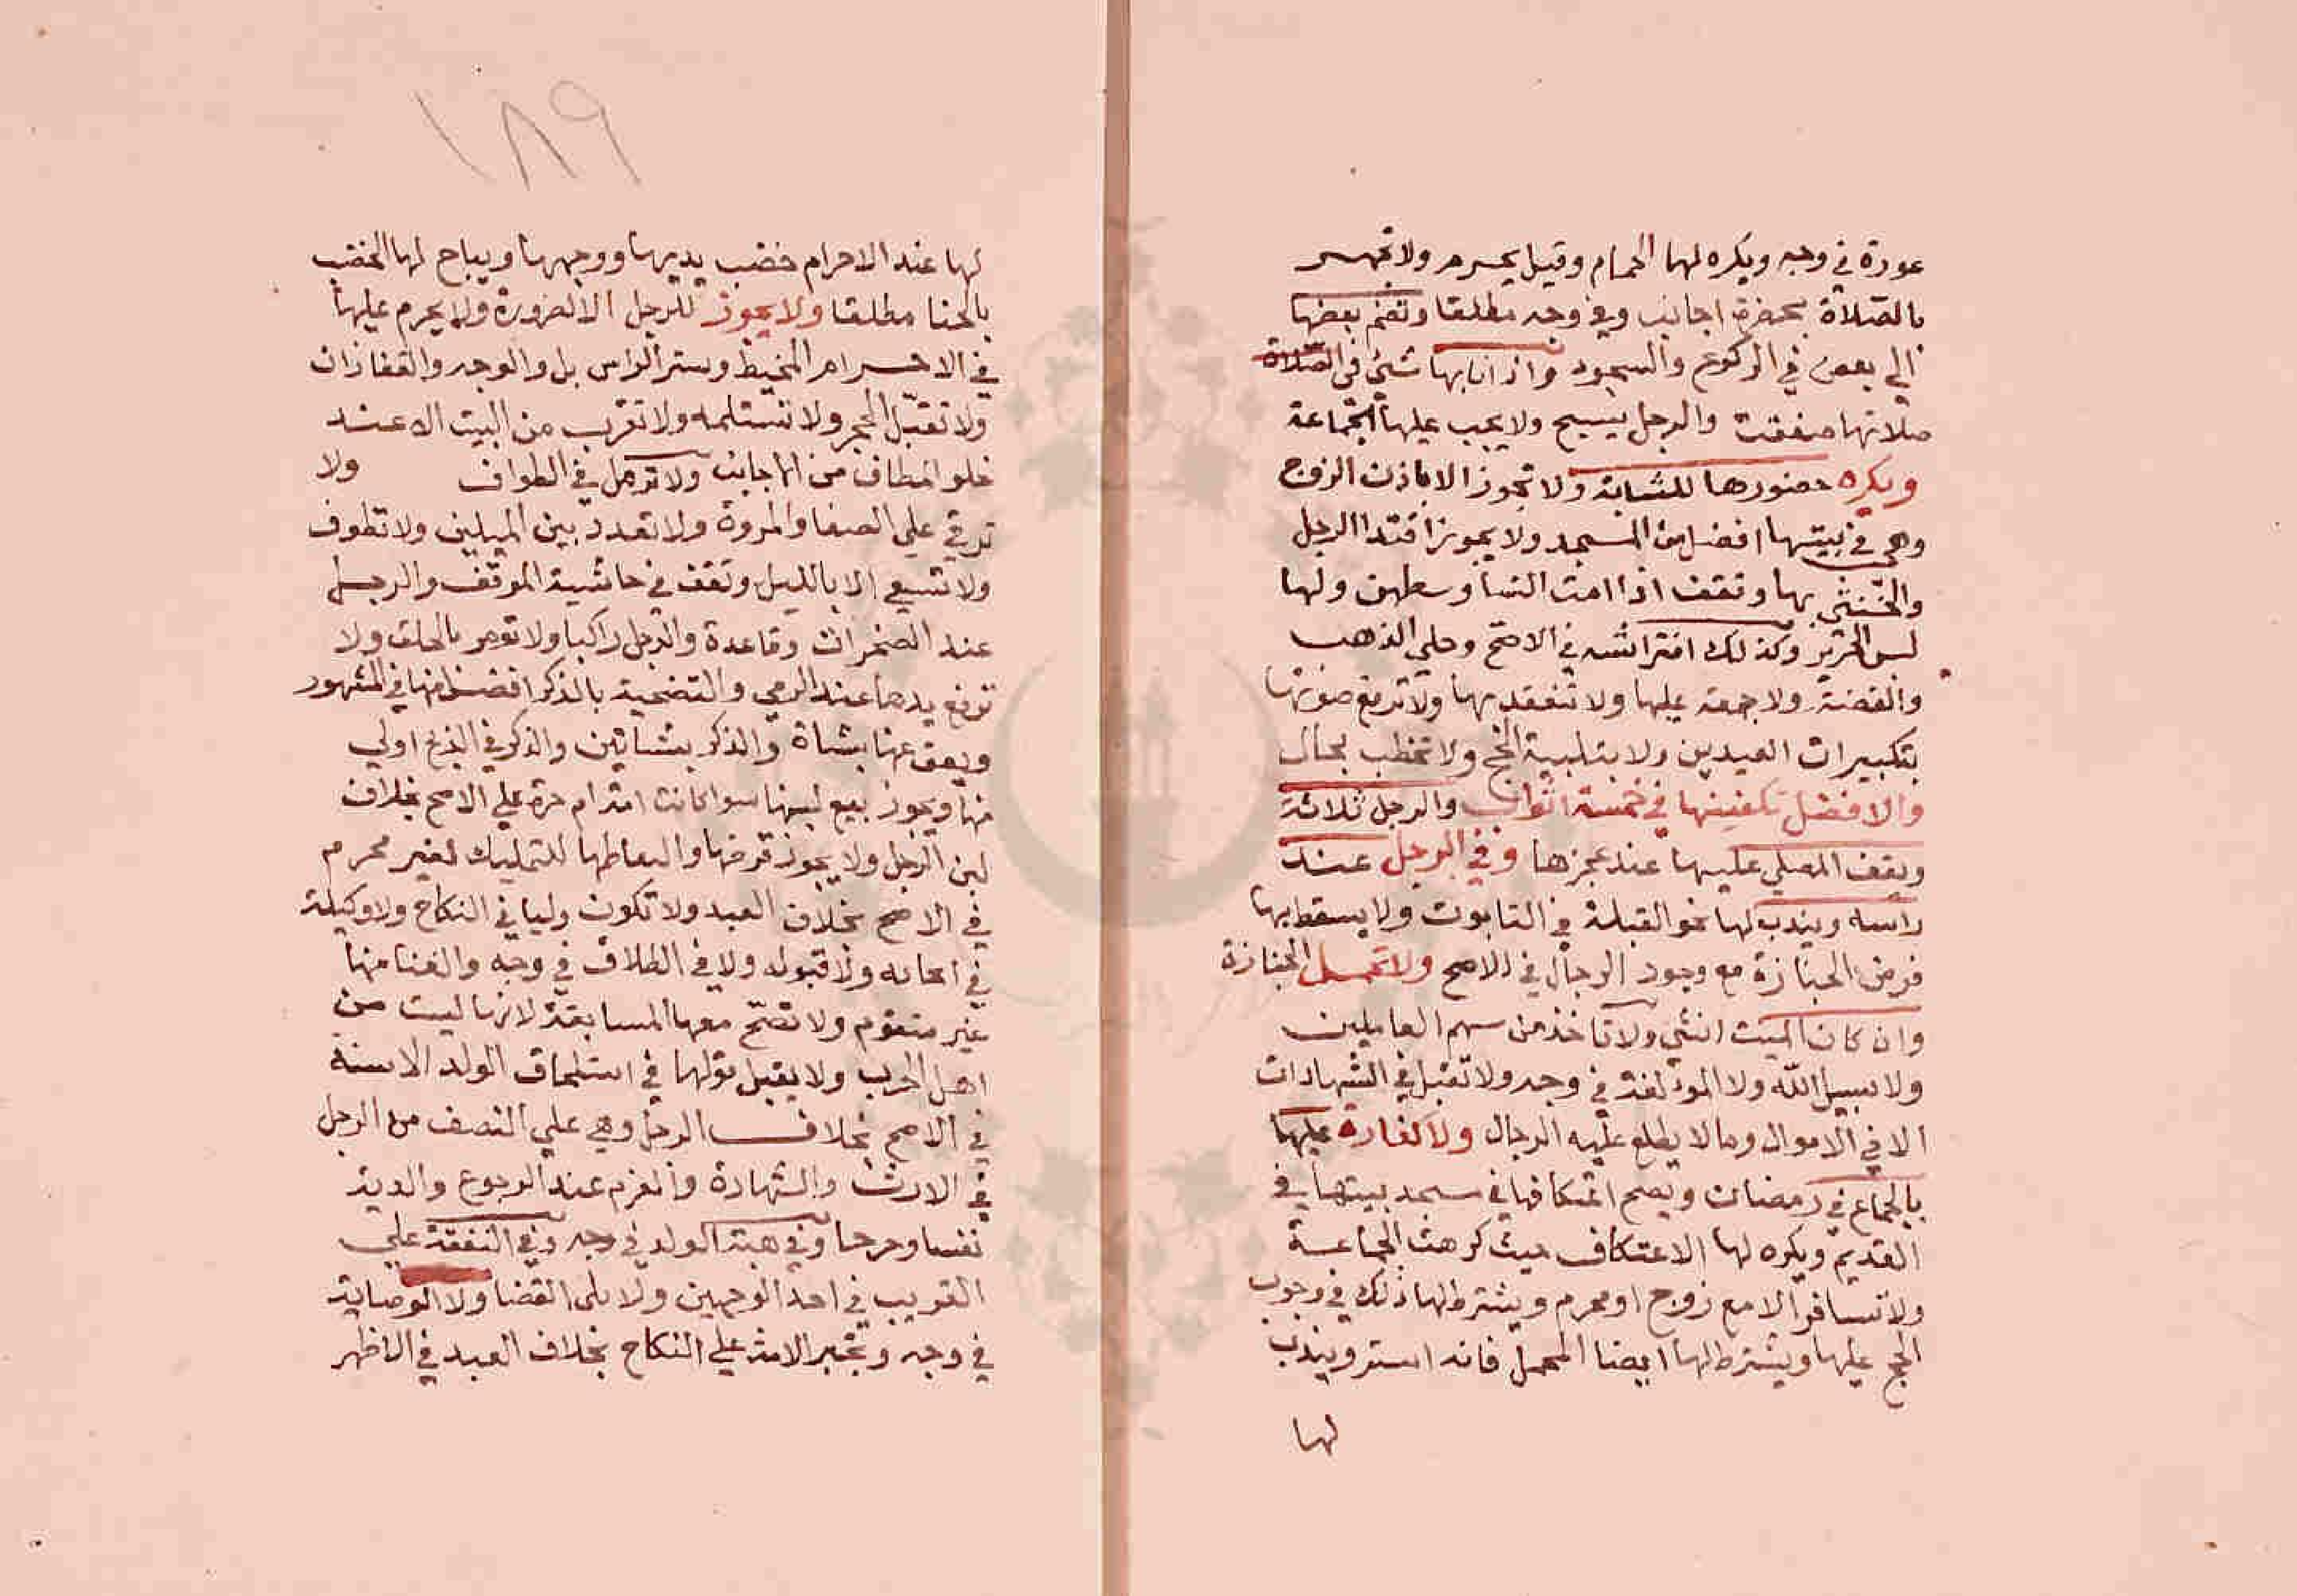 عورة في وجه ويكره لها الحمام وقيل يحرم ولا تجهر
بالصلاة بحضرة اجانب وفي وجه مطلقا وتضم بعضها
الي بعض في الركوع والسجود واذا نابها شئ في الصلاة
صلاتها صفقت والرجل يسبح ولا يجب عليها الجماعة
ويكره حضورها للشابة ولا تجوز الا باذن الزوج
وهي في بيتها افضل من المسجد ولا يجوز اقتدا الرجل
والخنثي بها وتقف اذا امت النسا وسطهن ولها
لبس الحرير وكذلك افتراشه في الاصح وحلي الذهب
والفضة ولا جمعة عليها ولا تنعقد بها ولا ترفع صوتها
بتكبيرات العيدين ولا بتلبية الحج ولا تخطب بحال
والافضل تكفينها في خمسة اثواب والرجل ثلاثة
ويقف المصلي عليها عند عجزها وفي الرجل عند
راسه ويندب لها نحو القبلة في التابوت ولا يسقط بها
فرض الجنازة مع وجود الرجال في الاصح ولا تحمل الجنازة
وان كان الميت انثي ولا تاخذ من سهم العاملين
ولا سبيل الله ولا المولفة في وجه ولا تقبل في الشهادات
الا في الاموال وما لا يطلع عليه الرجال ولا كفارة عليها
بالجماع في رمضان ويصح اعتكافها في مسجد بيتها في
القديم ويكره لها الاعتكاف حيث كرهت الجماعة
ولا تسافر الا مع زوج او محرم ويشترط لها ذلك في وجوب
الحج عليها ويشترط لها ايضا المحمل فانه استر ويندب
لها
١٨٩
لها عند الاحرام خضب يديها ووجهها ويباح لها الخضب
بالحنا مطلقا ولا يجوز للرجل الا لضرورة ولا يحرم عليها
في الاحرام المخيط وستر الراس بل والوجه والقفازان
ولا تقبل الحجر ولا تستلمه ولا تقرب من البيت الا عند
خلو المطاف من الاجانب ولا ترمل في الطواف ولا
ترقي علي الصفا والمروة ولا تعدو بين الميلين ولا تطوف
ولا تسعي الا بالليل وتقف في حاشية الموقف والرجل
عند الصخرات وقاعدة والرجل راكبا ولا تومر بالحلق ولا
ترفع يدها عند الرمي والتضحية بالذكر افضل منها في المشهور
ويعق عنها بشاة والذكر بشاتين والذكر في الذبح اولي
منها ويجوز بيع لبنها سوا كانت امة ام حرة علي الاصح بخلاف
لبن الرجل ولا يجوز قرضها والتقاطها للتمليك لغير محرم
في الاصح بخلاف العبد ولا تكون وليا في النكاح ولا وكيلة
في ايجابه ولا قبوله ولا في الطلاق في وجه والغنا منها
غير متقوم ولا تصح معها المسابقة لانها ليست من
اهل الحرب ولا يقبل قولها في استلحاق الولد الا ببينة
في الاصح بخلاف الرجل وهي علي النصف من الرجل
في الارث والشهادة والغرم عند الرجوع والدية
نفسا وجرحا وفي هبة الولد في وجه وفي النفقة علي
القريب في احد الوجهين ولا تلي القضا ولا الوصاية
في وجه وتجبر الامة علي النكاح بخلاف العبد في الاظهر